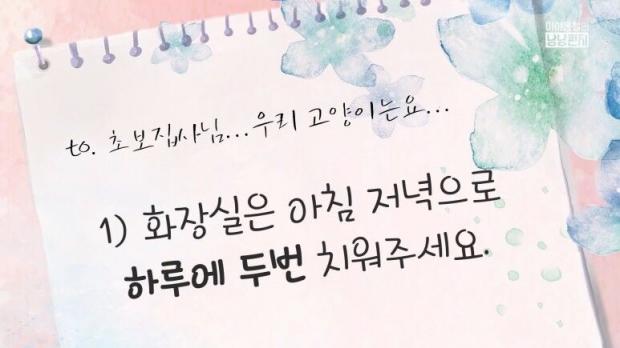 to. 초보집사님...우리 고양이는요...
1) 화장실은 아침 저녁으로
하루에 두번 치워주세요.